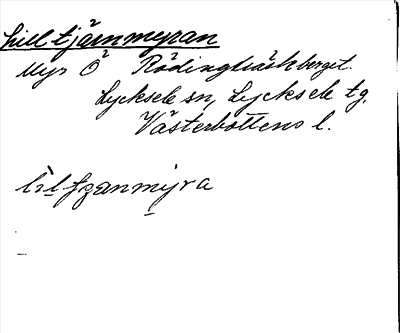 Lilltjärnmyran
Myr Ö Rödingträskberget.
Lycksele sn, Lycksele tg.
Västerbottens l.
lilfzanmyra